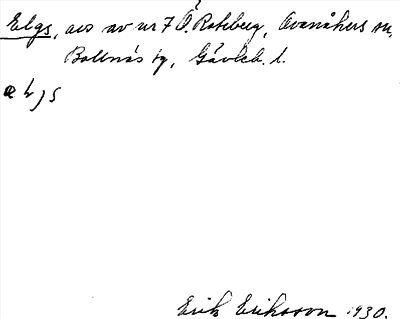 Elgs, avs av nr 7 Ö. Roteberg, Ovanåkers sn,
Bollnäs tg, Gävleb. l.
Erik Eriksson 1930.